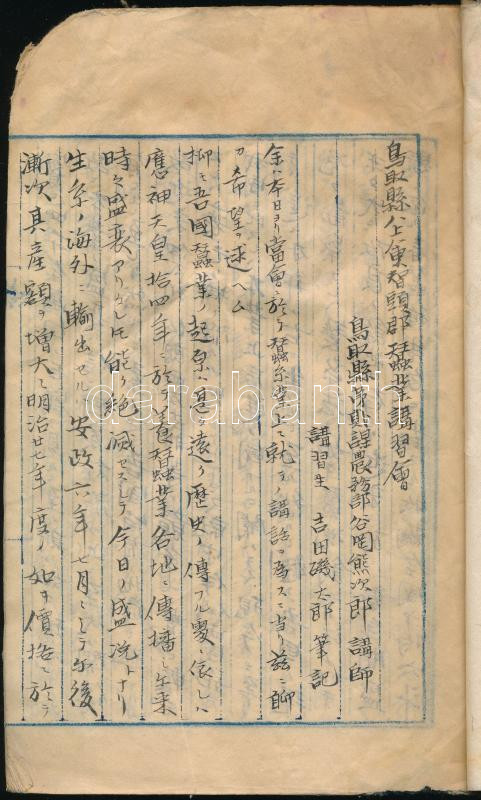 鳥取縣八上東智頭郡蚕業講習會
鳥取縣第貳課農務部谷岡熊次郎 講師
講習生 吉田磯太郎 筆記
余ハ本日ヨリ當會ニ於テ蚕糸業上ニ就テノ講話ヲ為スニ当リ茲ニ聊
カ希望ヲ述ヘム
抑ニ吾國蚕業ノ起原ハ甚タ遠ク歴史ノ傳フル處ニ依レハ
應神天皇拾四年ニ於テ養蚕業各地ニ傳播シ尓来
時々盛衰アリシトモ能ク絶滅セスシテ今日ノ盛况トナリ
生糸ノ海外ニ輸出セルハ安政六年七月ニシテ尓後
漸次其産額ヲ増大シ明治廿七年度ノ如キ價格ニ於テ
darabanth